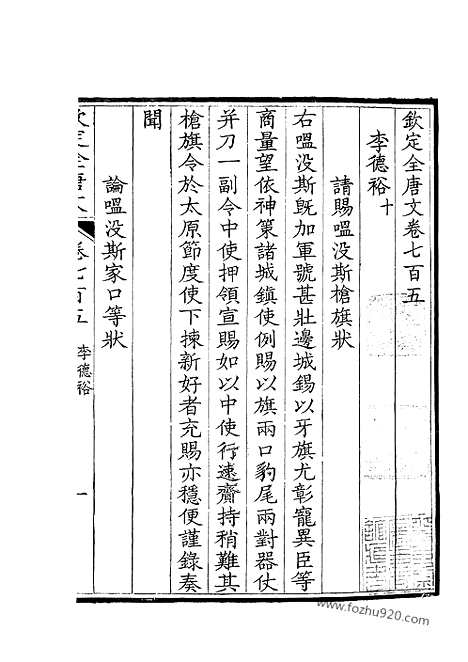 欽定全唐文卷七百五
李德裕十
請賜嗢没斯槍旗狀
右嗢没斯旣加軍號甚壯邊城錫以牙旗尤彰寵異臣等
商量望依神策諸城鎮使例賜以旗兩口豹尾兩對器仗
并刀一副令中使押領宣賜如以中使行速齎持稍難其
槍旗令於太原節度使下揀新好者充賜亦穩便謹錄奏
聞
論嗢没斯家口等狀
欽定全唐文
卷七百五
李德裕
一
www.fozhu920.com